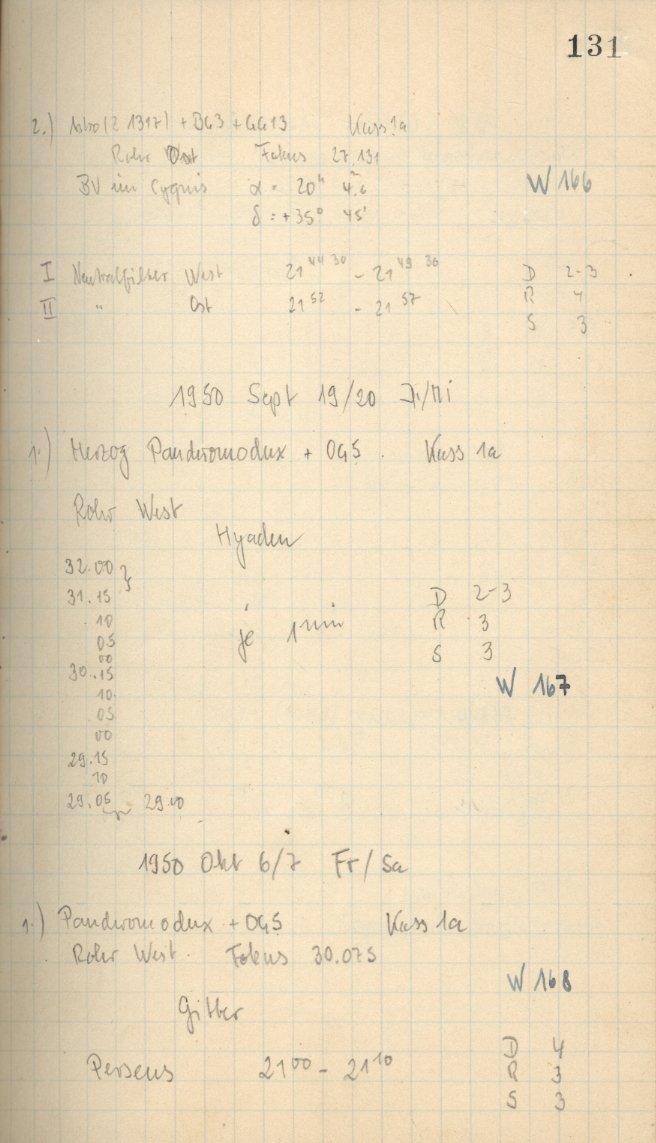 131
2.) Astro (Z 1317) + BG3 + GG13 Kass 1a
Rohr Ost Fokus 27.131
BV im Cygnus α = 20h 4m.6
δ = +35° 45'
W 166
I Neutralfilter West 21 44 30 - 21 49 30 D 2-3
II " Ost 21 52 - 21 57 R 4
S 3
1950 Sept 19/20 Di/Mi
1.) Herzog Panchromodux + OG5. Kass 1a
Rohr West
Hyaden
32.00
31.15 D 2-3
10 je 1 min R 3
05
00 S 3
30.15 W 167
10.
05
00
29.15
10
29.05 29.00
1950 Okt 6/7 Fr/Sa
1.) Panchromodux + OG5 Kass 1a
Rohr West. Fokus 30.075
W 168
Gitter
D 4
Perseus 21 00 - 21 10 R 3
S 3